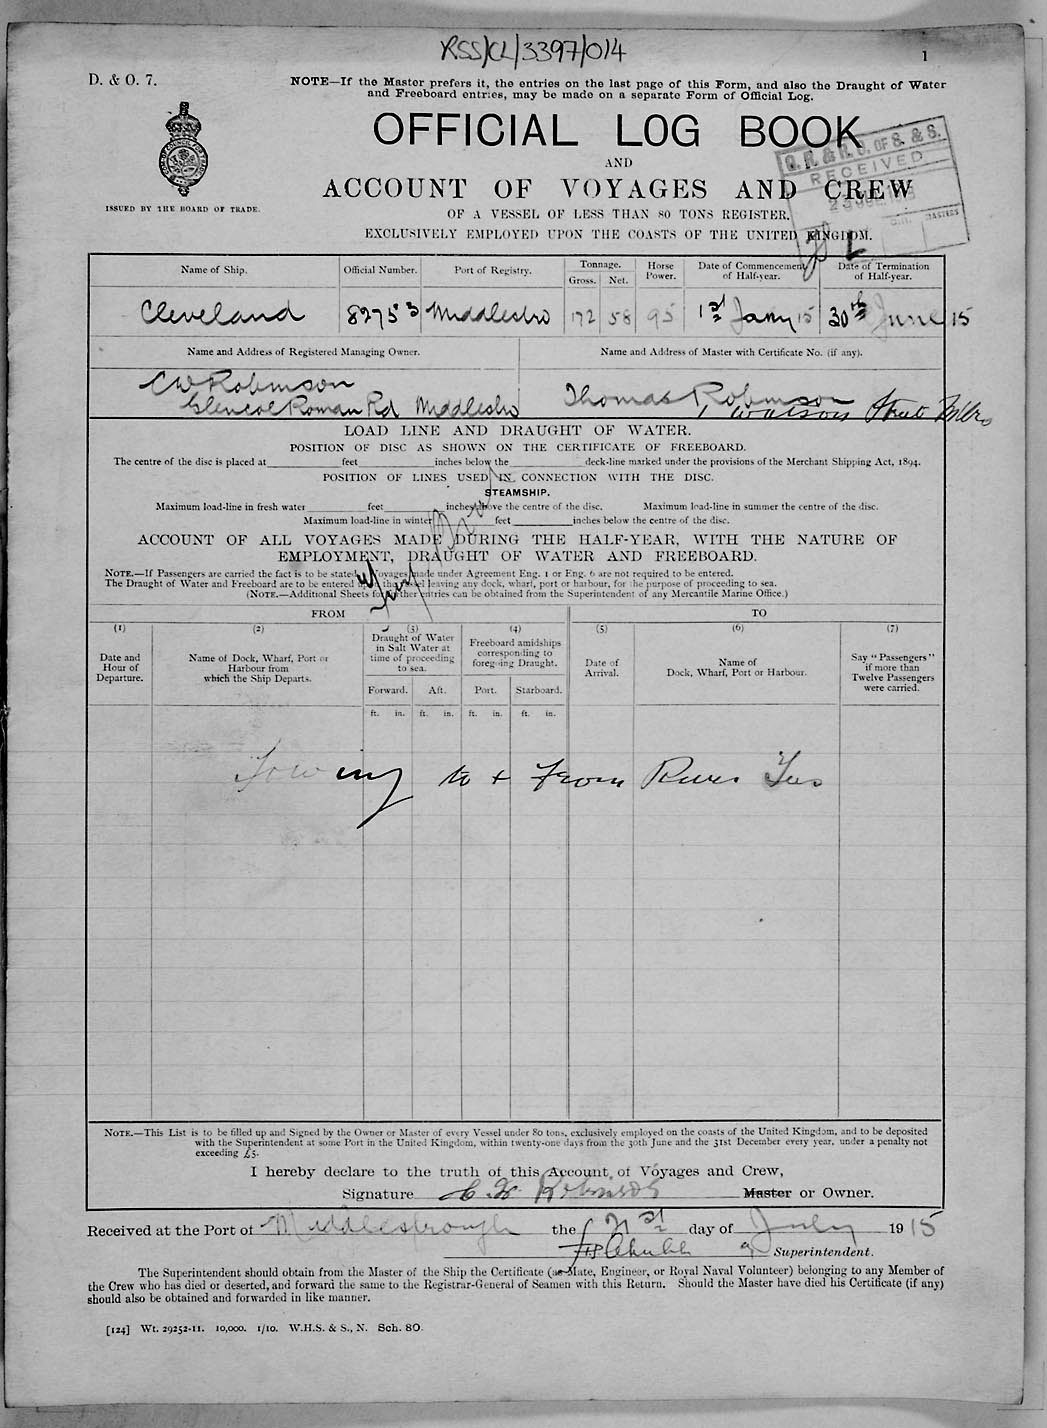 RSS/CL/3397/014
1
D. & O. 7.
NOTE—If the Master prefers it, the entries on the last page of this Form, and also the Draught of Water
and Freeboard entries, may be made on a separate Form of Official Log.
OFFICIAL LOG BOOK
AND
ACCOUNT OF VOYAGES AND CREW
OF A VESSEL OF LESS THAN 80 TONS REGISTER,
EXCLUSIVELY EMPLOYED UPON THE COASTS OF THE UNITED KINGDOM.
ISSUED BY THE BOARD OF TRADE.
OF S. & S.
RECEIVED
MASTERS
Name of Ship. Official Number. Port of Registry. Tonnage. Gross. Net. Horse Power. Date of Commencement of Half-year. Date of Termination of Half-year.
Cleveland 82753 Middlesbro 172 58 95 1st Jany 15 30th June 15
Name and Address of Registered Managing Owner. Name and Address of Master with Certificate No. (if any).
CW Robinson Thomas Robinson
Glencoe Roman Rd Middlesbro Watson Street
LOAD LINE AND DRAUGHT OF WATER.
POSITION OF DISC AS SHOWN ON THE CERTIFICATE OF FREEBOARD.
The centre of the disc is placed at feet inches below the deck-line marked under the provisions of the Merchant Shipping Act, 1894.
POSITION OF LINES USED IN CONNECTION WITH THE DISC.
STEAMSHIP.
Maximum load-line in fresh water feet inches above the centre of the disc. Maximum load-line in summer the centre of the disc.
Maximum load-line in winter feet inches below the centre of the disc.
ACCOUNT OF ALL VOYAGES MADE DURING THE HALF-YEAR, WITH THE NATURE OF
EMPLOYMENT, DRAUGHT OF WATER AND FREEBOARD.
NOTE.—If Passengers are carried the fact is to be stated. Voyages made under Agreement Eng. 1 or Eng. 6 are not required to be entered.
The Draught of Water and Freeboard are to be entered upon the vessel leaving any dock, wharf, port or harbour, for the purpose of proceeding to sea.
(NOTE.—Additional Sheets for further entries can be obtained from the Superintendent of any Mercantile Marine Office.)
FROM TO
(1) (2) (3) (4) (5) (6) (7)
Date and Hour of Departure.
Name of Dock, Wharf, Port or Harbour from which the Ship Departs.
Draught of Water in Salt Water at time of proceeding to sea.
Forward. Aft.
Freeboard amidships corresponding to foregoing Draught.
Port. Starboard.
Date of Arrival.
Name of Dock, Wharf, Port or Harbour.
Say "Passengers" if more than Twelve Passengers were carried.
ft. in. ft. in. ft. in. ft. in.
Towing to & from River Tees
NOTE.—This List is to be filled up and Signed by the Owner or Master of every Vessel under 80 tons, exclusively employed on the coasts of the United Kingdom, and to be deposited
with the Superintendent at some Port in the United Kingdom, within twenty-one days from the 30th June and the 31st December every year, under a penalty not
exceeding £5.
I hereby declare to the truth of this Account of Voyages and Crew,
Signature C. W. Robinson Master or Owner.
Received at the Port of Middlesbrough the 21st day of July 1915
Superintendent.
The Superintendent should obtain from the Master of the Ship the Certificate (as Mate, Engineer, or Royal Naval Volunteer) belonging to any Member of
the Crew who has died or deserted, and forward the same to the Registrar-General of Seamen with this Return. Should the Master have died his Certificate (if any)
should also be obtained and forwarded in like manner.
[124] Wt. 29252-11. 10,000. 1/10. W.H.S. & S., N. Sch. 80.